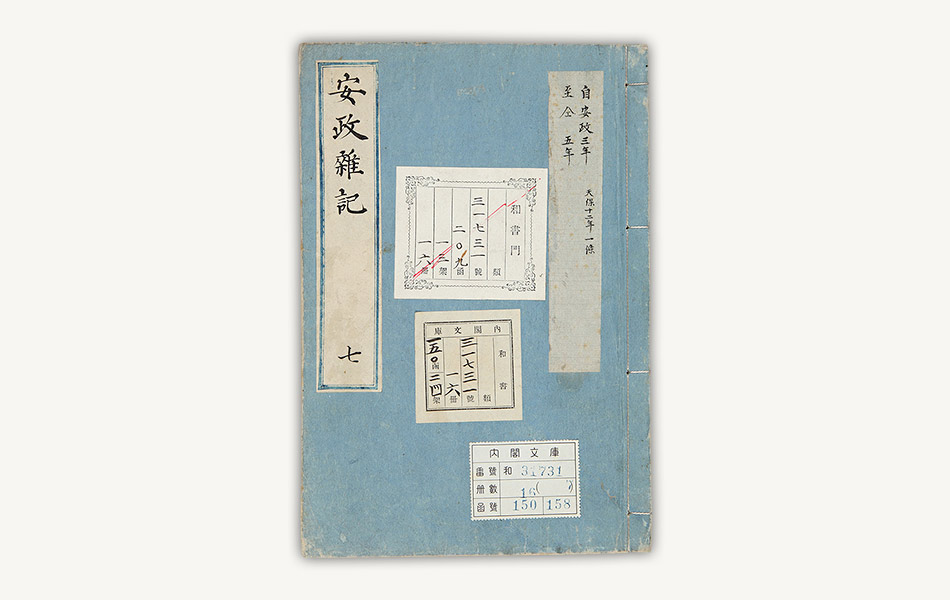 安政雜記
七
自安政三年
至仝五年
天保十二年一條
和書門
類
三一七三一號
二〇九函
一三架
一六冊
內閣文庫
和書
類
三一七三一號
一六冊
一五〇函二四架
內閣文庫
番號 和 31731
冊數 16( )
函號 150 158